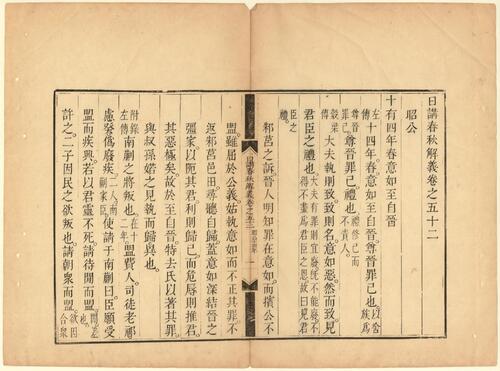 日講春秋解義卷之五十二
昭公
十有四年春意如至自晉
左傳十四年春意如至自晉尊晉罪己也以舍族爲
尊晉罪己尊晉罪己禮也禮修己而不責人
穀梁傳大夫執則致致則名意如惡然而致見
君臣之禮也大夫有罪則宜廢旣不能廢不得不盡爲君臣之恩故曰見君
臣之禮
日講春秋解義卷之五十二 昭公十四年 一
邾莒之訴晉人明知罪在意如而擯公不
盟雖屈於公義姑執意如而不正其罪不
返邾莒邑田尋聽自歸蓋意如深結晉之
彊家以阨其君利則歸己而危辱則推君
其惡極矣故於至自晉特去氏以著其罪
與叔孫婼之見執而歸異也
附錄左傳南蒯之將叛也在十二年盟費人司徒老祁
慮癸僞廢疾二人南蒯家臣使請于南蒯曰臣願受
盟而疾興若以君靈不死請待閒而盟閒差也
許之二子因民之欲叛也請朝衆而盟欲因合衆